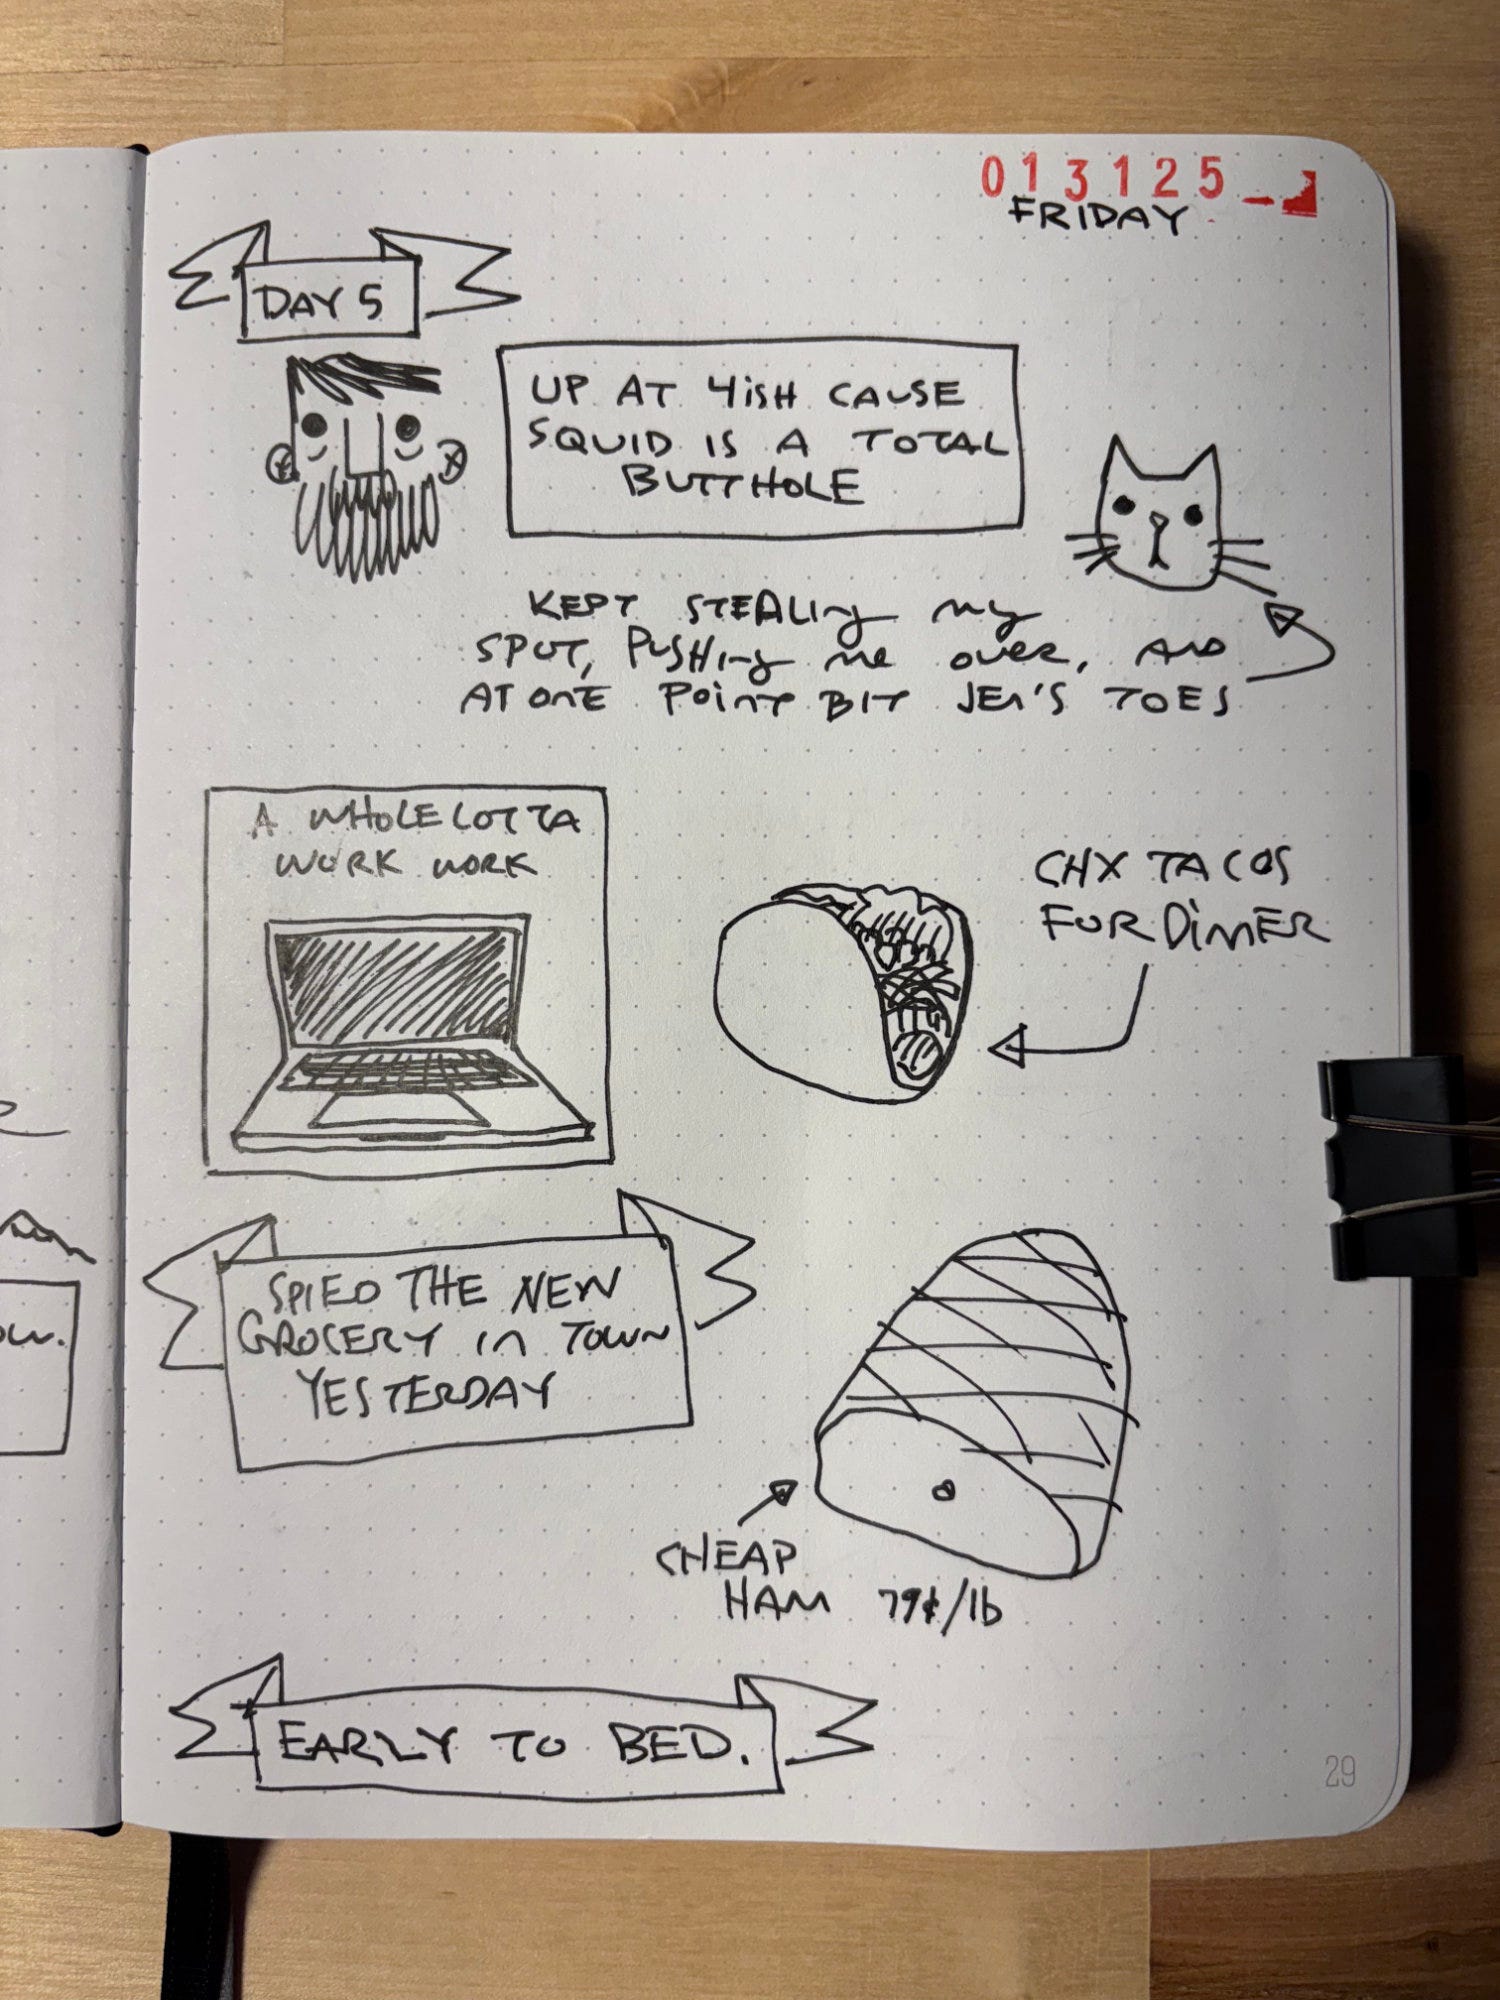 013125
FRIDAY
DAY 5
UP AT 4ISH CAUSE
SQUID IS A TOTAL
BUTTHOLE
KEPT STEALING MY
SPOT, PUSHING ME OVER, AND
AT ONE POINT BIT JEN'S TOES
A WHOLE LOTTA
WORK WORK
CHX TACOS
FOR DINNER
SPIED THE NEW
GROCERY IN TOWN
YESTERDAY
CHEAP
HAM 79¢/lb
EARLY TO BED.
29